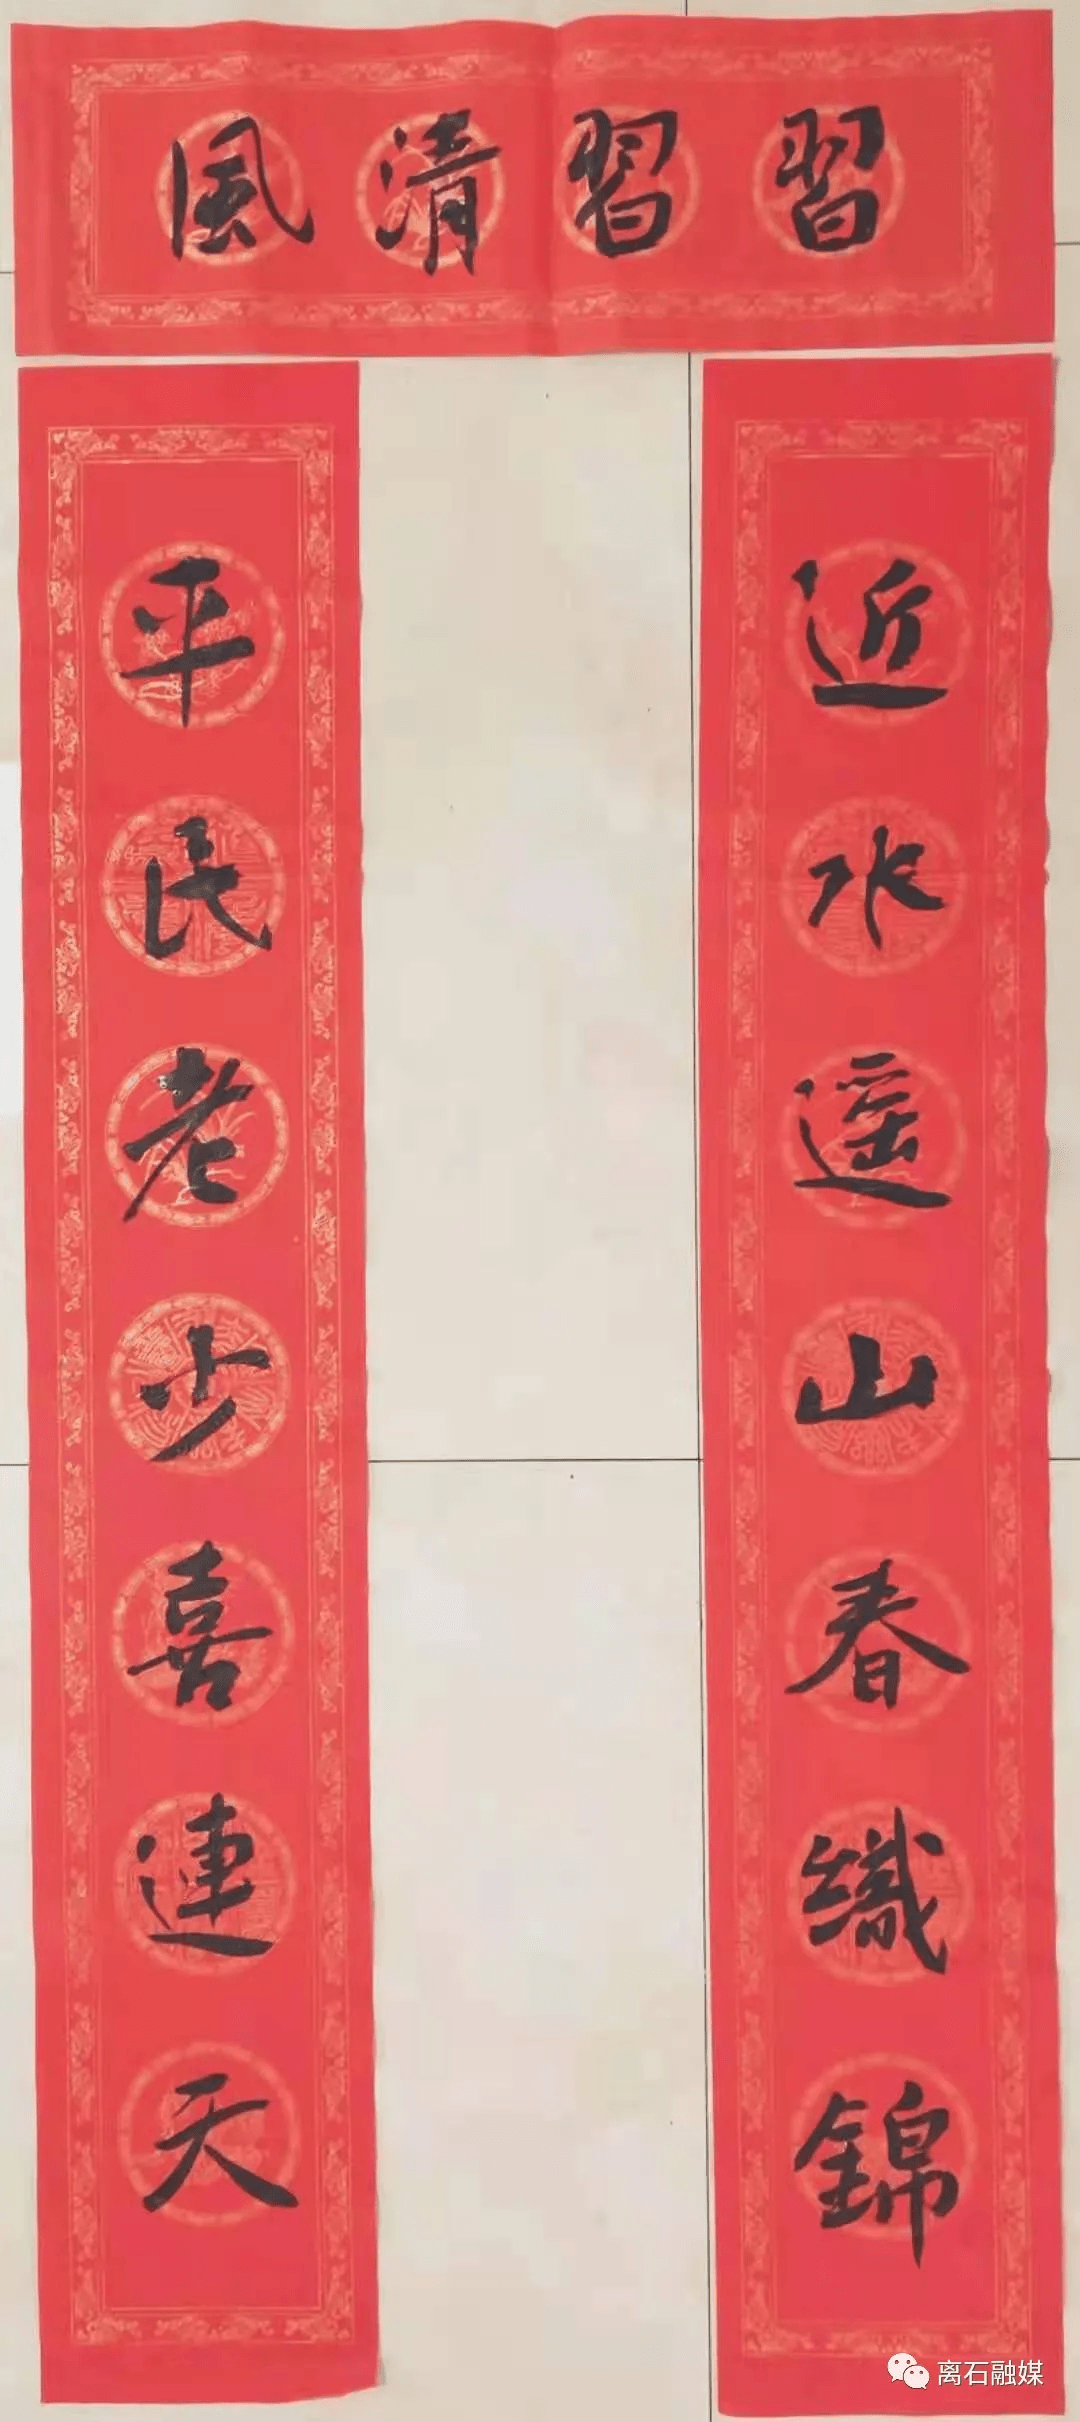 習習清風
近水遥山春織錦
平民老少喜連天
离石融媒